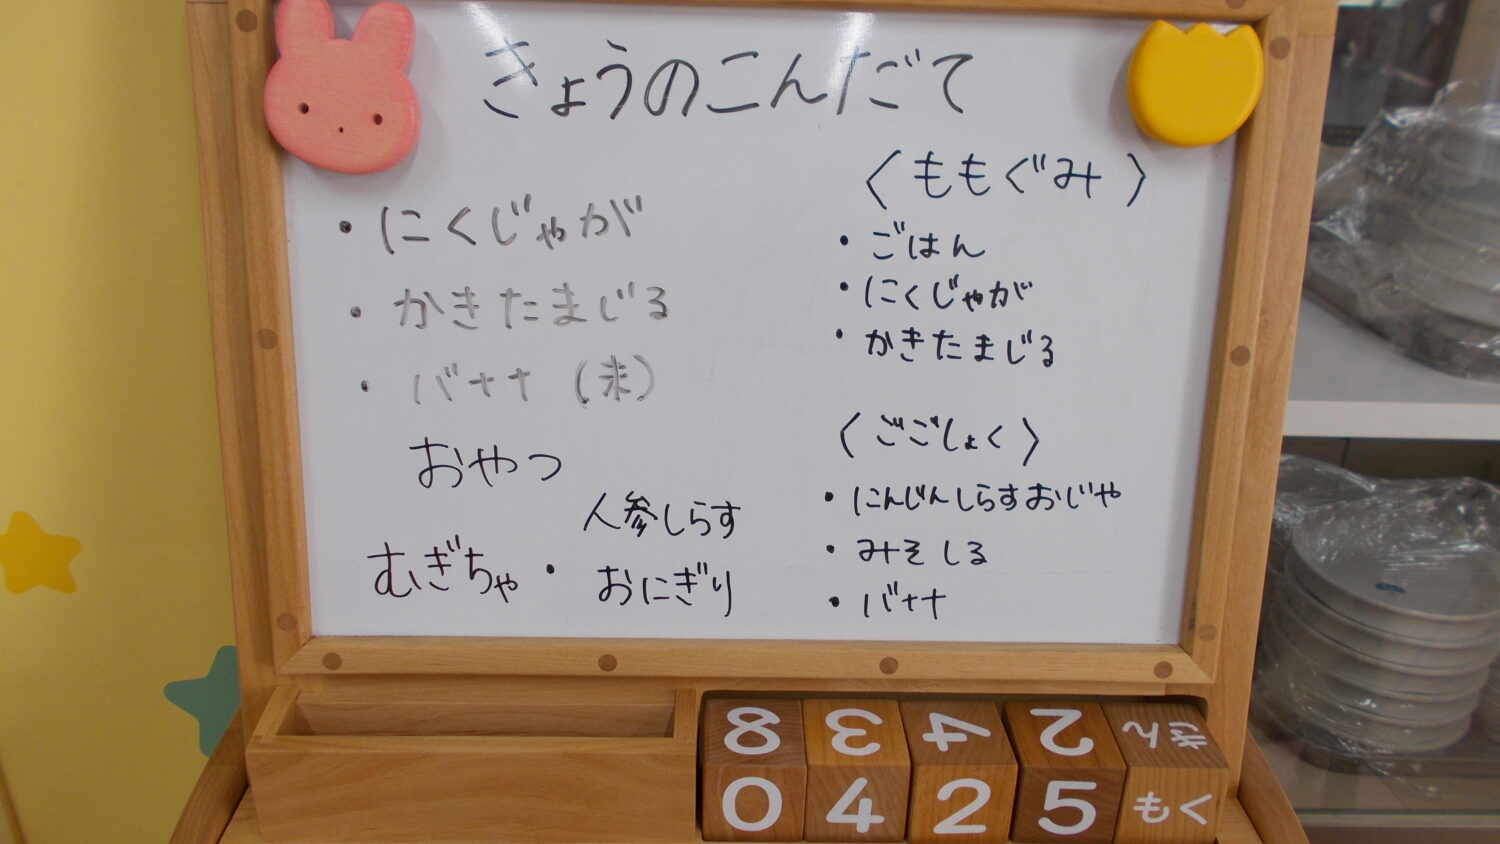 きょうのこんだて
・にくじゃが
・かきたまじる
・バナナ (米)
おやつ
むぎちゃ・人参しらす
おにぎり
〈ももぐみ〉
・ごはん
・にくじゃが
・かきたまじる
〈ごごしょく〉
・にんじんしらすおじや
・みそしる
・バナナ
8 3 4 2 きん
0 4 2 5 もく